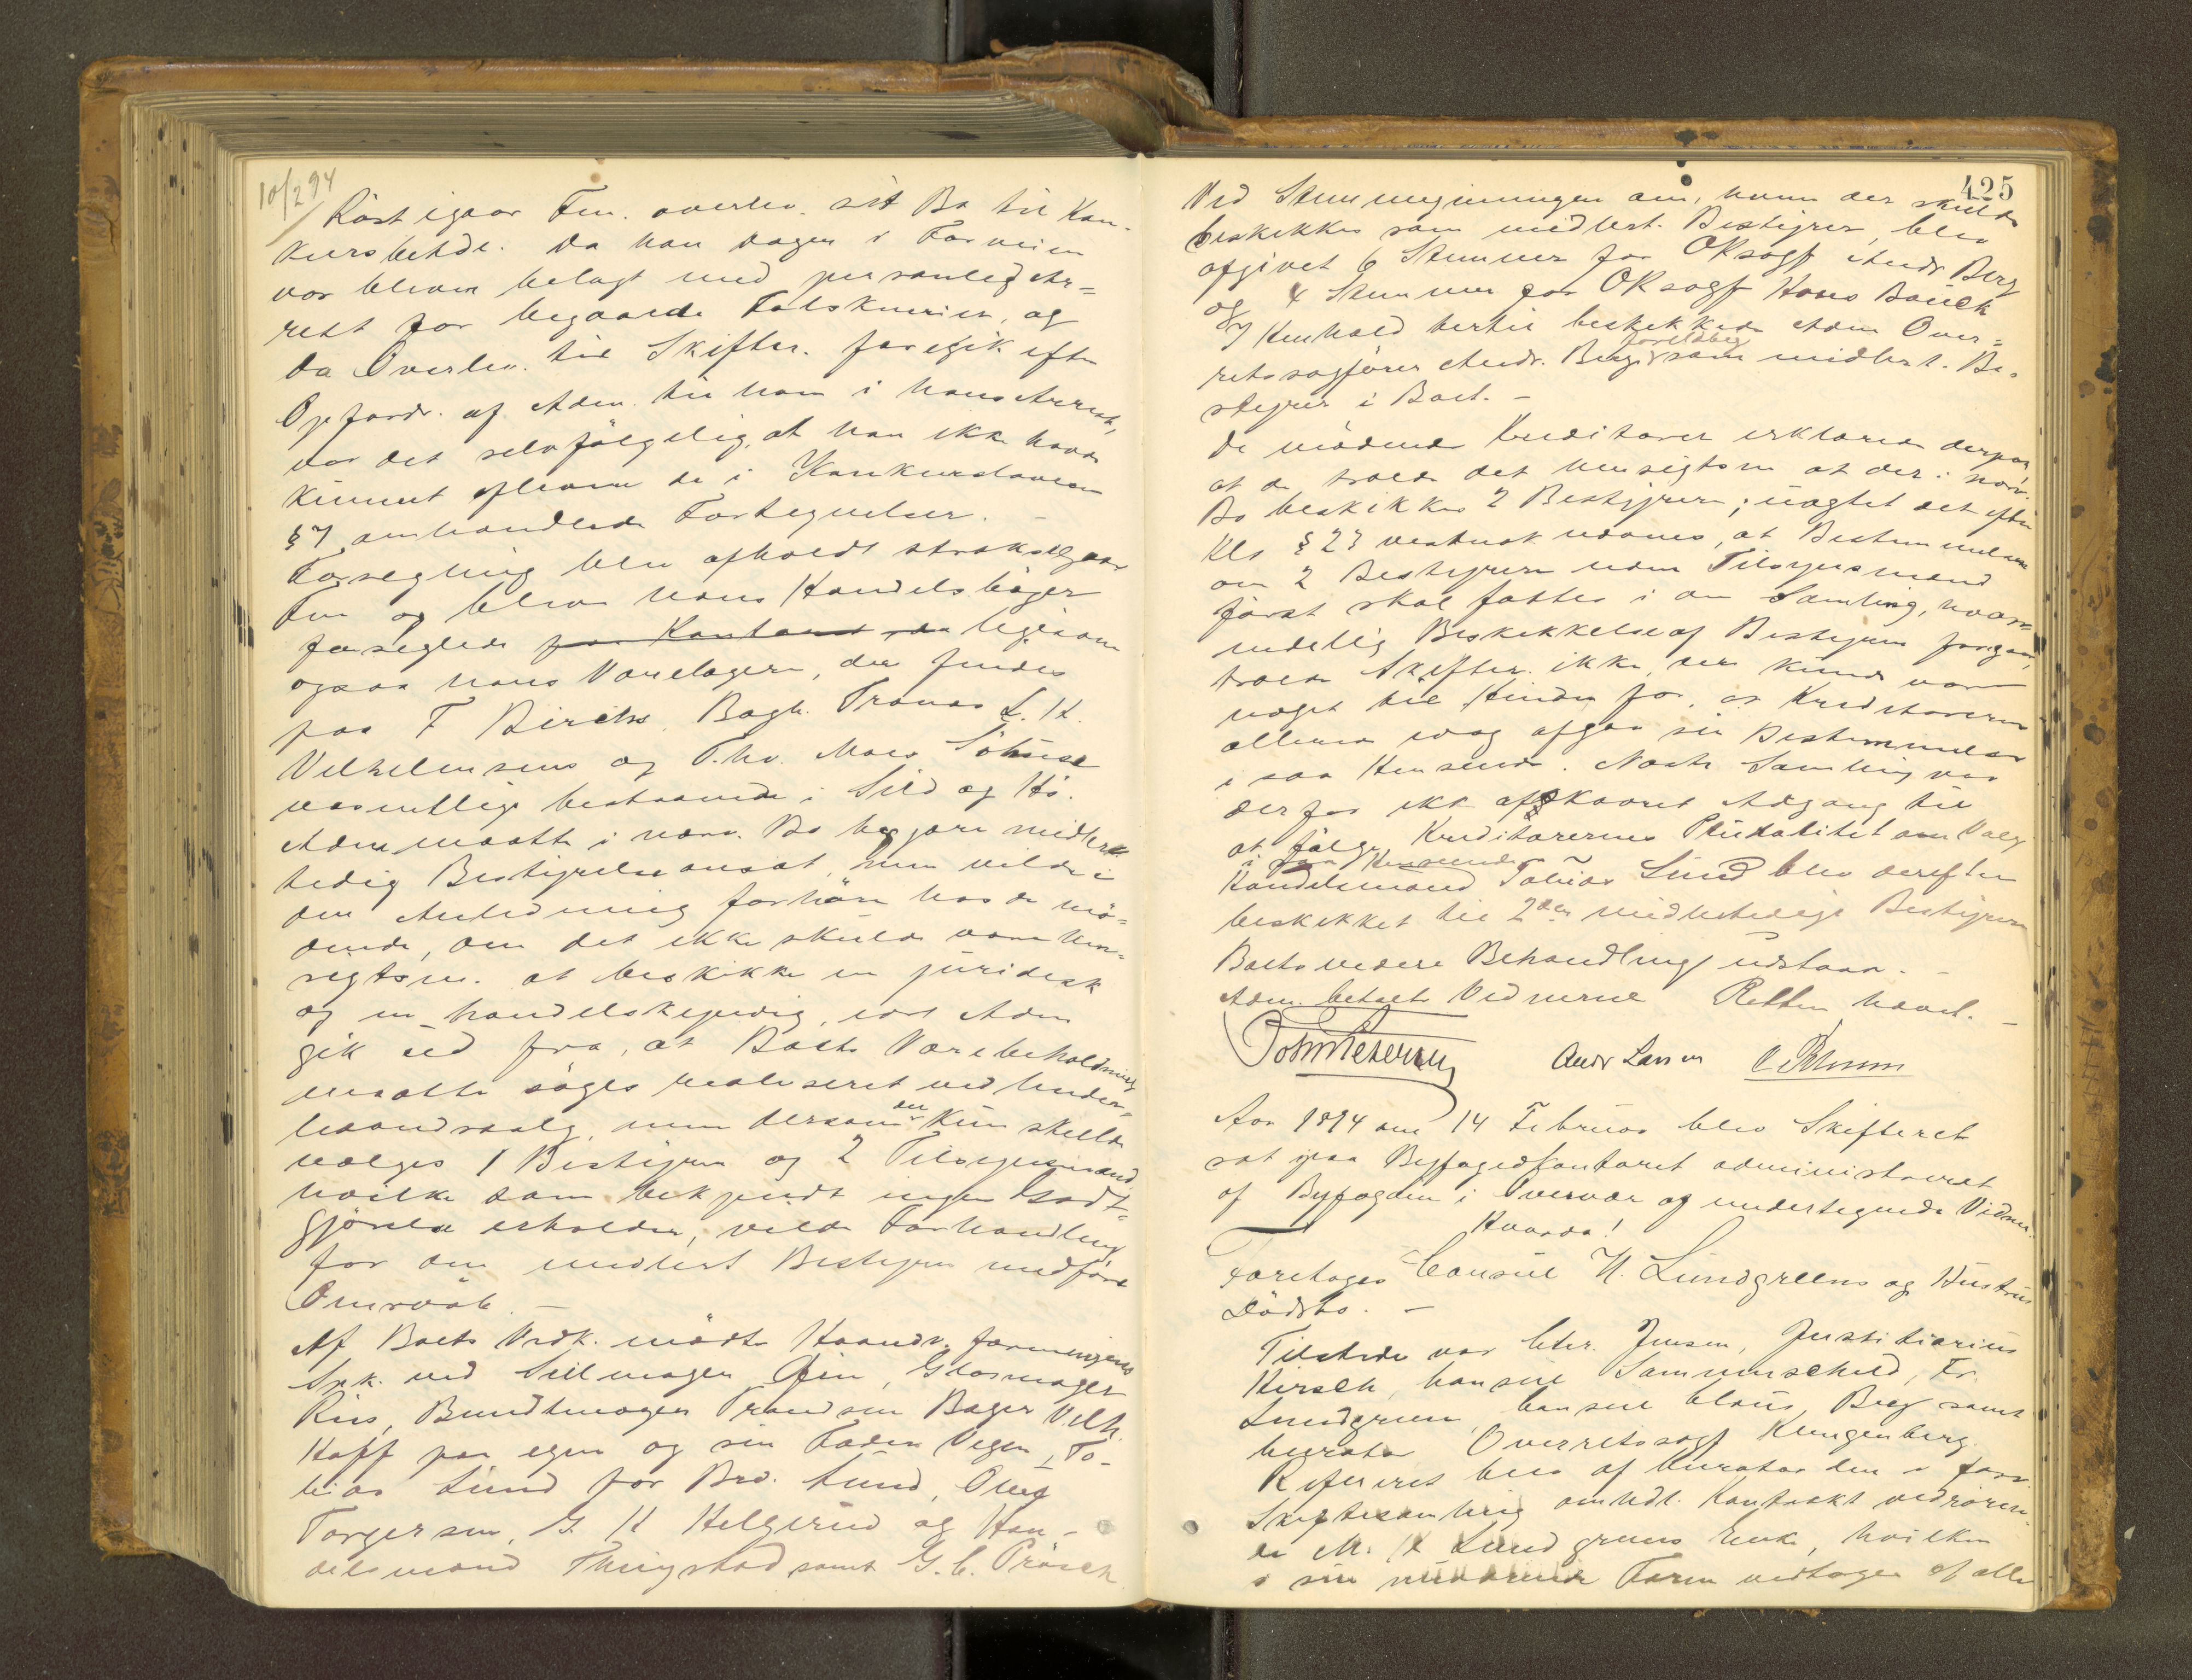 10/2 94
igaar Fm. overlev. sit Bo til Kon-
kursbehdl. Da han Dagen i Forveien
var bleven belagt med personlig Ar=
rest for begaaede Falsknerier, og
da Overlev. til Skifter. foregik efter
Opfordr. af Adm. til ham i hans Arrest,
var det selvfølgelig, at han ikke havde
kunnet aflevere de i Konkursloven
§ 7 omhandlede Fortegnelser. –
Forsegling blev afholdt straks igaar
Fm og blev hans Handelsbøger
forseglede paa Kontoret, da ligesom
ogsaa hans Varelagere, der findes
paa F Birchs, Bagh. Tranes L. H.
Vilhelmsens og T. hv. Moes Søhuse
væsentlig bestaaende i Sild og Hø.
Adm maatte i nærv. Bo begjære midler-
tidig Bestyrelse ansat, men vilde i
den Anledning forhøre hos de mø-
dende, om det ikke skulde være hen-
sigtsm. at beskikke en juridisk
og en handelskyndig, idet Adm
gik ud fra, at Boets Varebeholdning
maatte søges realiseret ved Under-
haandssalg, men dersom der kun skulde
vælges 1 Bestyrer og 2 Tilsynsmænd,
hvilke som bekjendt ingen Godt-
gjørelse erholder, vilde Forhandling
for den midlert Bestyrer medføre
Omsvøb. –
Af Boets Vedk. mødte Haandv. foreningens
Spk. ved Sælmager Gjin, Glasmager
Riis, Bundtmager Trandsen Bager Vilh.
Hoff paa egne og sin Faders Vegne, To-
bias Lund for Brd. Lund, Oluf
Torgersen, G. H Helgerud og Han-
delsmand Thingstad samt G. C. Prøsch
425
Ved Stemmegivningen om, hvem der skulde
beskikkes som midlert. Bestyrer, blev
afgivet 6 Stemmer for ORsagf Andr Berg
og 4 Stemmer for ORsagf Hans Bauck
I Henhold hertil beskikkede Adm Over-
foreløbig
retssagfører Andr. Berg som midlert. Be-
styrer i Boet. –
De mødende Kreditorer erklærede derpaa
at de troede det hensigtsm at der i nærv.
Bo beskikkes 2 Bestyrere; uagtet det efter
Kls § 23 vistnok udtømes, at Bestemmelsen
om 2 Bestyrere uden Tilsynsmænd
først skal fattes i en Samling, hvor
endelig Beskikkelse af Bestyrer foregaar,
troede Skifter. ikke, der kunde være
noget til Hinder for, at Kreditorerne
allerede idag afgav sin Bestemmelse
i saa Henseende. Næste Samling var
derfor ikke afskaaret Adgang til
at følge Kreditorernes Pluralitet om Valg
i saa Henseende
Handelsmand Tobias Lund blev derefter
beskikket til 2den midlertidige Bestyrer
Boets videre Behandling udstaar. –
Adm. betalte Vidnerne Retten hævet. –
Andr Larsen
Aar 1894 den 14 Februar blev Skifteret
sat paa Byfogedkontoret administreret
af Byfogden i Overvær af undertegnede Vidner.
Hvorda!
Foretoges Consul H. Lundgreens og Hustrus
Dødsbo. –
Tilstede var Ctr. Jensen, Justitiarius
Kirsch, Consul Sammerschild, Fr.
Lundgreen, Consul Claus Berg samt
Curator Overretssagf Klingenberg.
Refereret blev af Curator den i forr.
Skiftesamling omhdl. Kontrakt vedrøren-
de M. H Lundgreens Enke, hvilken
i sin nuværende Form vedtoges af alle